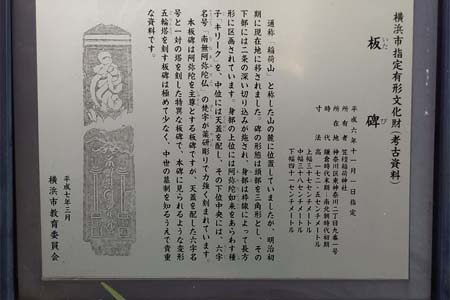 横浜市指定有形文化財(考古資料)
いた び
板碑
平成六年十一月一日指定
所有者 笠䅣稲荷神社
所在地 神奈川区東神奈川二丁目九番一号
時代 鎌倉時代末期~南北朝時代初期
寸法 高 一七二・五センチメートル
上幅三十七センチメートル
中幅三十八センチメートル
下幅四十一センチメートル
通称「稲荷山」と称した山の麓に位置していましたが、明治初
期に現在地に移されました。碑の形態は頭部を三角形とし、その
下部には二条の深い切り込みが施され、身部は枠線によって長方
形に区画されています。身部の上位には阿弥陀如来をあらわす種
子「キリーク」を、中位には天蓋を配し、その下位中央には、六字
名号「南無阿弥陀仏」の梵字が薬研彫りで力強く刻まれています。
本板碑は阿弥陀を主尊とする板碑ですが、天蓋を配した六字名
号と一対の塔を刻した特異な板碑で、本碑に見られるような変形
五輪塔を刻す板碑は極めて少なく、中世の墓制を知るうえで貴重
な資料です。
平成七年三月
横浜市教育委員会